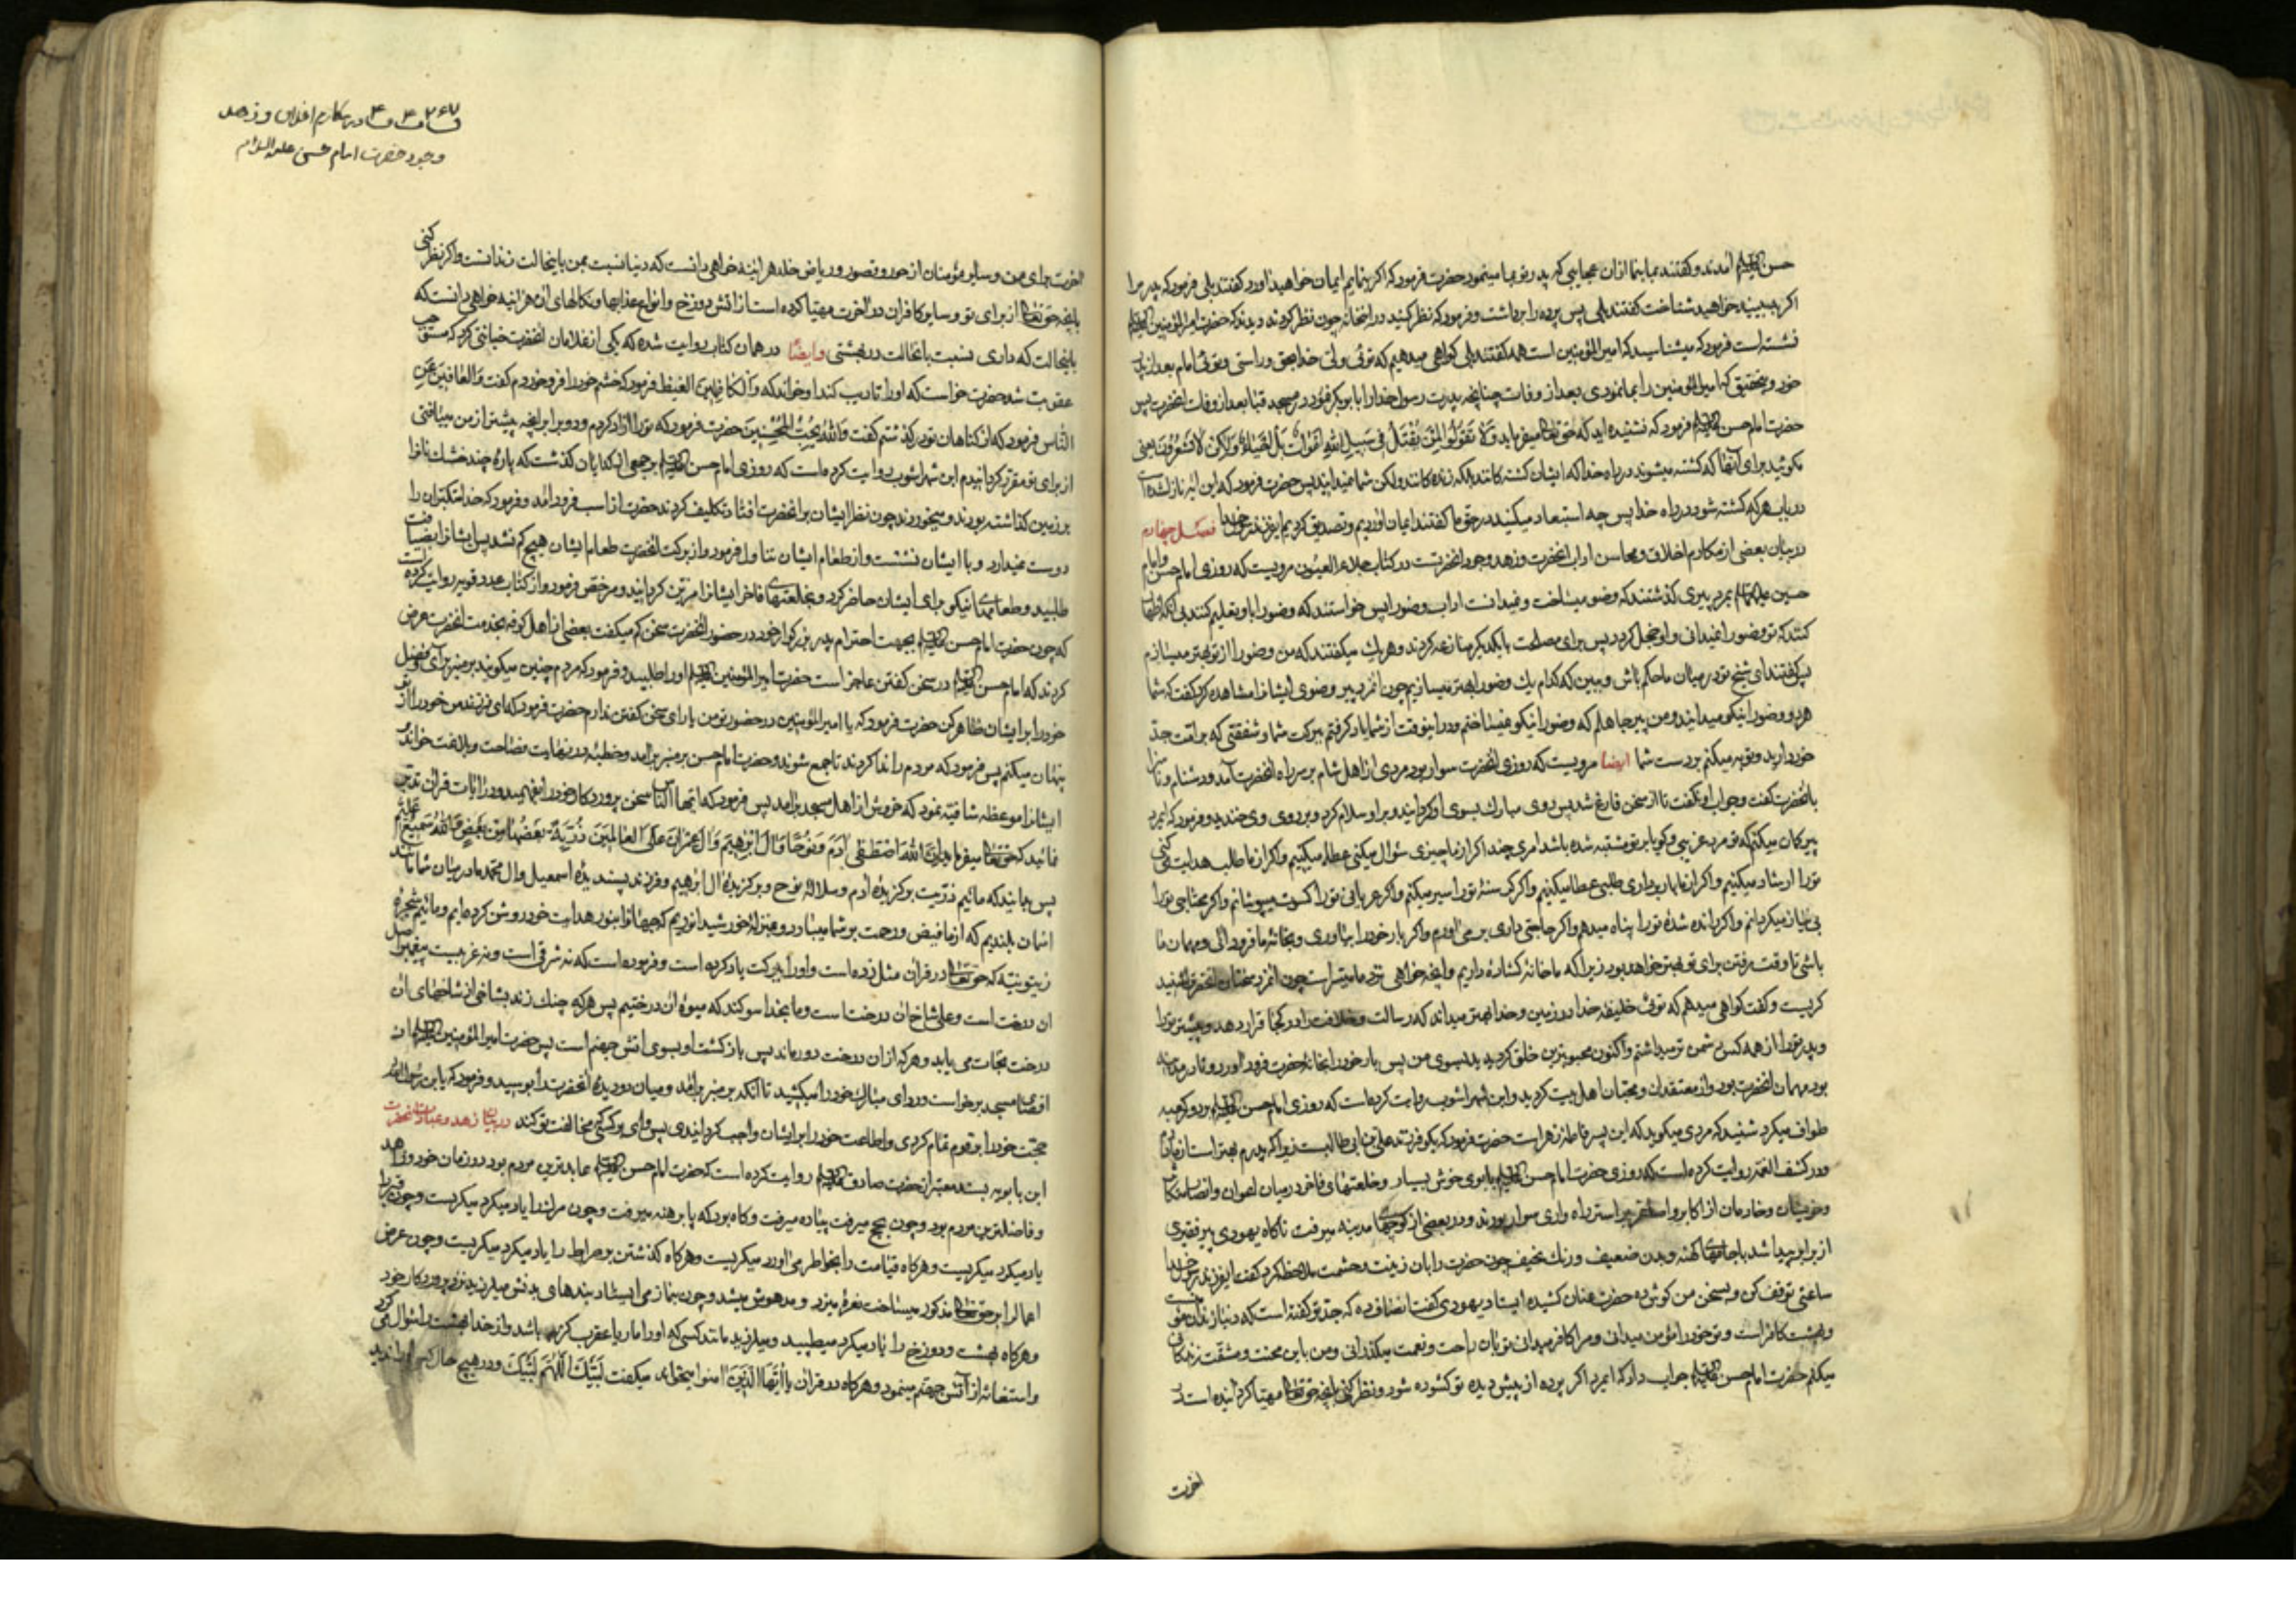 حسن علیه السلام آمدند و گفتند بما بنما از ان عجایبی که پدر تو بما مینمود حضرت فرمود که اگر بنمایم ایمان خواهید اورد گفتند بلی فرمود که پدر مرا
اگر ببینید خواهید شناخت گفتند بلی پس پرده را برداشت و فرمود که نظر کنید در اینخانه چون نظر کردند دیدند که حضرت امیرالمؤمنین
نشسته است فرمود که میشناسید که امیرالمؤمنین است همه گفتند بلی کواهی میدهیم که توئی ولی خدا بحق و راستی و توئی امام بعد از پدر
خود و بتحقیق که امیرالمؤمنین را بما نمودی بعد از وفات چنانچه پدرت رسول خدا را بابوبکر نمود در مسجد قبا بعد از وفات انحضرت پس
حضرت امام حسن فرمود که نشنیده اید که حق تعالی میفرماید وَلا تَقُولُوا لِمَن يُقتَلُ فی سَبيلِ اللهِ اَمواتٌ بَل اَحياءٌ وَلكِن لا تَشعُرُونَ یعنی
مکوئید برای آنها که کشته میشوند در راه خدا که ایشان کشته کانند بلکه زنده کانند ولکن شما نمیدانید پس حضرت فرمود که این ایه نازل شده است
در باب هر که کشته شود در راه خدا پس چه استبعاد میکنید در حق ما گفتند ایمان اوردیم و تصدیق کردیم ایفرزند رسول خدا فصل چهارم
در بیان بعضی از مکارم اخلاق و محاسن اداب انحضرت و زهد وجود انحضرتست در کتاب جلاء العیون مرویست که روزی امام حسن و امام
حسین علیهما السلام بمرد پیری گذشتند که وضو میساخت و نمیدانست اداب وضو را پس خواستند که وضو را باو تعلیم کنند بی انکه اظهار
کنند که تو وضو را نمیدانی و او خجل گردد پس برای مصلحت با یکدیگر منازعه کردند و هر یک میگفتند که من وضو را از تو بهتر میسازم
پس گفتند ای شیخ تو در میان ما حکم باش و ببین که کدام یک وضو را بهتر میسازیم چون انمرد پیر وضوی ایشانرا مشاهده کرد گفت که شما
هر دو وضو را نیکو میدانید و من پیر جاهلم که وضو را نیکو نمیساختم و در اینوقت از شما یاد گرفتم ببرکت شما و شفقتی که بر امّت جدّ
خود دارید و توبه میکنم بر دست شما ایضا مرویست که روزی انحضرت سوار بود مردی از اهل شام بر سر راه انحضرت آمد و دشنام و ناسزا
بانحضرت گفت و جواب او نگفت تا از سخن فارغ شد پس روی مبارک بسوی او گردانید و بر او سلام کرد و بر روی وی خندید و فرمود که ایمرد
پیر گمان میکنم که تو مرد غریبی و گویا بر تو مشتبه شده باشد امری چند اگر از ما چیزی سؤال میکنی عطا میکنیم و اگر از ما طلب هدایت میکنی
تو را ارشاد میکنیم و اگر از ما باربرداری طلبی عطا میکنیم و اگر گرسنهٔ تو را سیر میکنم و اگر عریانی تو را کسوت میپوشانم و اگر محتاجی تو را
بی نیاز میگردانم و اگر رانده شدهٔ تو را پناه میدهم و اگر حاجتی داری بر می اورم و اگر بار خود را بیاوری و بخانهٔ ما فرود ائی و مهمان ما
باشی تا وقت رفتن برای تو بهتر خواهد بود زیرا که ما خانهٔ گشاده داریم و انچه خواهی نزد ما میسّر است چون انمرد سخنان انحضرت شنید
گریست و گفت کواهی میدهم که توئی خلیفهٔ خدا در زمین و خدا بهتر میداند که رسالت و خلافت را در کجا قرار دهد و پیشتر تو را
و پدر تو را از همه کس دشمن تر میداشتم و اکنون محبوبترین خلق گردیدید بسوی من پس بار خود را بخانهٔ حضرت فرود اورد و تا در مدینه
بود مهمان انحضرت بود و از معتقدان و محبّان اهل بیت گردید و ابن شهر اشوب روایت کرده است که روزی امام حسن بر دور کعبه
طواف میکرد شنید که مردی میگوید که این پسر فاطمه زهراست حضرت فرمود که بگو فرزند علی بن ابی طالبست زیرا که پدرم بهتر است از مادرم
و در کشف الغمّه روایت کرده است که روزی حضرت امام حسن با بوی خوش بسیار و خلعتهای فاخر در میان اعوان و انصار
و خویشان و خادمان از اکابر و اصاغر بر استر راه واری سوار بودند و در بعضی از کوچهای مدینه میرفت ناگاه یهودی پیر فقیری
از برابر پیدا شد با جامهای کهنه و بدن ضعیف و رنک نحیف چون حضرت را بان زینت و حشمت ملاحظه کرد گفت ایفرزند رسول خدا
ساعتی توقف کن و بسخن من گوش ده حضرت عنان کشیده ایستاد یهودی گفت انصاف ده که جدّ تو گفته است که دنیا زندان مؤمن
و بهشت کافر است و تو خود را مؤمن میدانی و مرا کافر میدانی تو بان راحت و نعمت میگذرانی و من باین محنت و مشقّت زندگانی
میکنم حضرت امام حسن جواب داد که ایمرد اگر پرده از پیش دیده تو گشوده شود و نظر کنی بانچه حق تعالی مهیّا گردانیده است در
اخرت
در مکارم اخلاق و زهد
وجود حضرت امام حسن علیه السلام
اخرت برای من و سایر مؤمنان از حور و قصور و ریاض خلد هر اینه خواهی دانست که دنیا نسبت بمن باینحالت زندانست و اگر نظر کنی
بانچه حق تعالی از برای تو و سایر کافران در اخرت مهیّا کرده است از اتش دوزخ و انواع عذابها و نکالهای ان هر اینه خواهی دانست که
باینحالت که داری نسبت بانحالت در بهشتی وایضًا در همان کتاب روایت شده که یکی از غلامان انحضرت خیانتی کرد که مستوجب
عقوبت شد حضرت خواست که او را تادیب کند او خواند که وَالكاظِمينَ الغَيظَ فرمود که خشم خود را فرو خوردم گفت وَالعافينَ عَنِ
النّاسِ فرمود که از گناهان تو در گذشتم گفت وَاللهُ يُحِبُّ المُحسِنينَ حضرت فرمود که تو را ازاد کردم و دو برابر انچه پیشتر از من مییافتی
از برای تو مقرّر گردانیدم ابن شهر اشوب روایت کرده است که روزی امام حسن بر جمعی از گدایان گذشت که پارهٔ چند خشک نانرا
بر زمین گذاشته بودند و میخوردند چون نظر ایشان بر انحضرت افتاد تکلیف کردند حضرت از اسب فرود امد و فرمود که خدا متکبّران را
دوست نمیدارد و با ایشان نشست و از طعام ایشان تناول فرمود و از برکت انحضرت طعام ایشان هیچ کم نشد پس ایشانرا بضیافت
طلبید و طعامهای نیکو برای ایشان حاضر کرد و بخلعتهای فاخر ایشانرا مزیّن گردانید و مرخّص فرمود و از کتاب عدد قویه روایت کرده است
که چون حضرت امام حسن بجهت احترام پدر بزرگوار خود در حضور انحضرت سخن کم میگفت بعضی از اهل کوفه بخدمت انحضرت عرض
کردند که امام حسن در سخن گفتن عاجز است حضرت امیرالمؤمنین او را طلبید و فرمود که مردم چنین میگویند بر منبر برآی و فضل
خود را بر ایشان ظاهر کن حضرت فرمود که یا امیرالمؤمنین در حضور تو من یارای سخن گفتن ندارم حضرت فرمود که ای فرزند من خود را از تو
پنهان میکنم پس فرمود که مردم را ندا کردند تا جمع شوند و حضرت امام حسن بر منبر برامد و خطبهٔ در نهایت فصاحت و بلاغت خواند و
ایشانرا موعظهٔ شافیهٔ نمود که خروش از اهل مسجد برامد پس فرمود که ایّها النّاس سخن پروردگار خود را بفهمید و در ایات قران تدبّر
نمائید که حق تعالی میفرماید اِنَّ اللهَ اصطَفى ادَمَ وَنُوحًا وَالَ اِبرهيمَ وَالَ عِمرانَ عَلَى العالَمينَ ذُرّيّةً بَعضُها مِن بَعضٍ وَاللهُ سَميعٌ عَليمٌ
پس بدانید که مائیم ذرّیت برگزیدهٔ ادم و سلالهٔ نوح و برگزیدهٔ ال ابرهیم و فرزند پسندیدهٔ اسمعیل و ال محمد ما در میان شما مانند
اسمان بلندیم که از ما فیض و رحمت بر شما میبارد و بمنزلهٔ خورشید انوریم که جهانرا بنور هدایت خود روشن کرده ایم و مائیم شجرهٔ
زیتونیّه که حق تعالی در قران مثل زده است و او را ببرکت یاد کرده است و فرموده است که نه شرقی است و نه غربیست پیغمبر اصل
ان درخت است و علی شاخ ان درخت است و ما بخدا سوگند که میوهٔ ان درختیم پس هر که چنک زند بشاخی از شاخهای ان
درخت نجات می یابد و هر که از ان درخت دور ماند پس بازگشت او بسوی اتش جهنم است پس حضرت امیرالمؤمنین از
اقصای مسجد برخواست و ردای مبارک خود را میکشید تا انکه بر منبر برامد و میان دو دیدهٔ انحضرت را بوسید و فرمود که یا بن رسول الله
حجّت خود را بر قوم تمام کردی و اطاعت خود را بر ایشان واجب گردانیدی پس وای بر کسی که مخالفت تو کند در بیان زهد و عبادت انحضرت
ابن بابویه بسند معتبر از حضرت صادق روایت کرده است که حضرت امام حسن عابدترین مردم بود در زمان خود و زاهد
و فاضلترین مردم بود و چون بحج میرفت پیاده میرفت و گاه بود که پا برهنه میرفت و چون مرگ را یاد میکرد میگریست و چون قبر را
یاد میکرد میگریست و هرگاه قیامت را بخاطر می اورد میگریست و هرگاه گذشتن بر صراط را یاد میکرد میگریست و چون عرض
اعمال را بر حق تعالی مذکور میساخت نعرهٔ میزد و مدهوش میشد و چون بنماز می ایستاد بندهای بدنش میلرزید نزد پروردگار خود
و هرگاه بهشت و دوزخ را یاد میکرد میطپید و میلرزید مانند کسی که او را مار یا عقرب گزیده باشد و از خدا بهشت را سئوال می کرد
و استغاثه از آتش جهنم مینمود و هرگاه در قران یا اَیُّهَا الَّذینَ امنوا میخواند میگفت لَبَّيكَ اَللّهُمَّ لَبَّيكَ و در هیچ حال کسی او را ندید